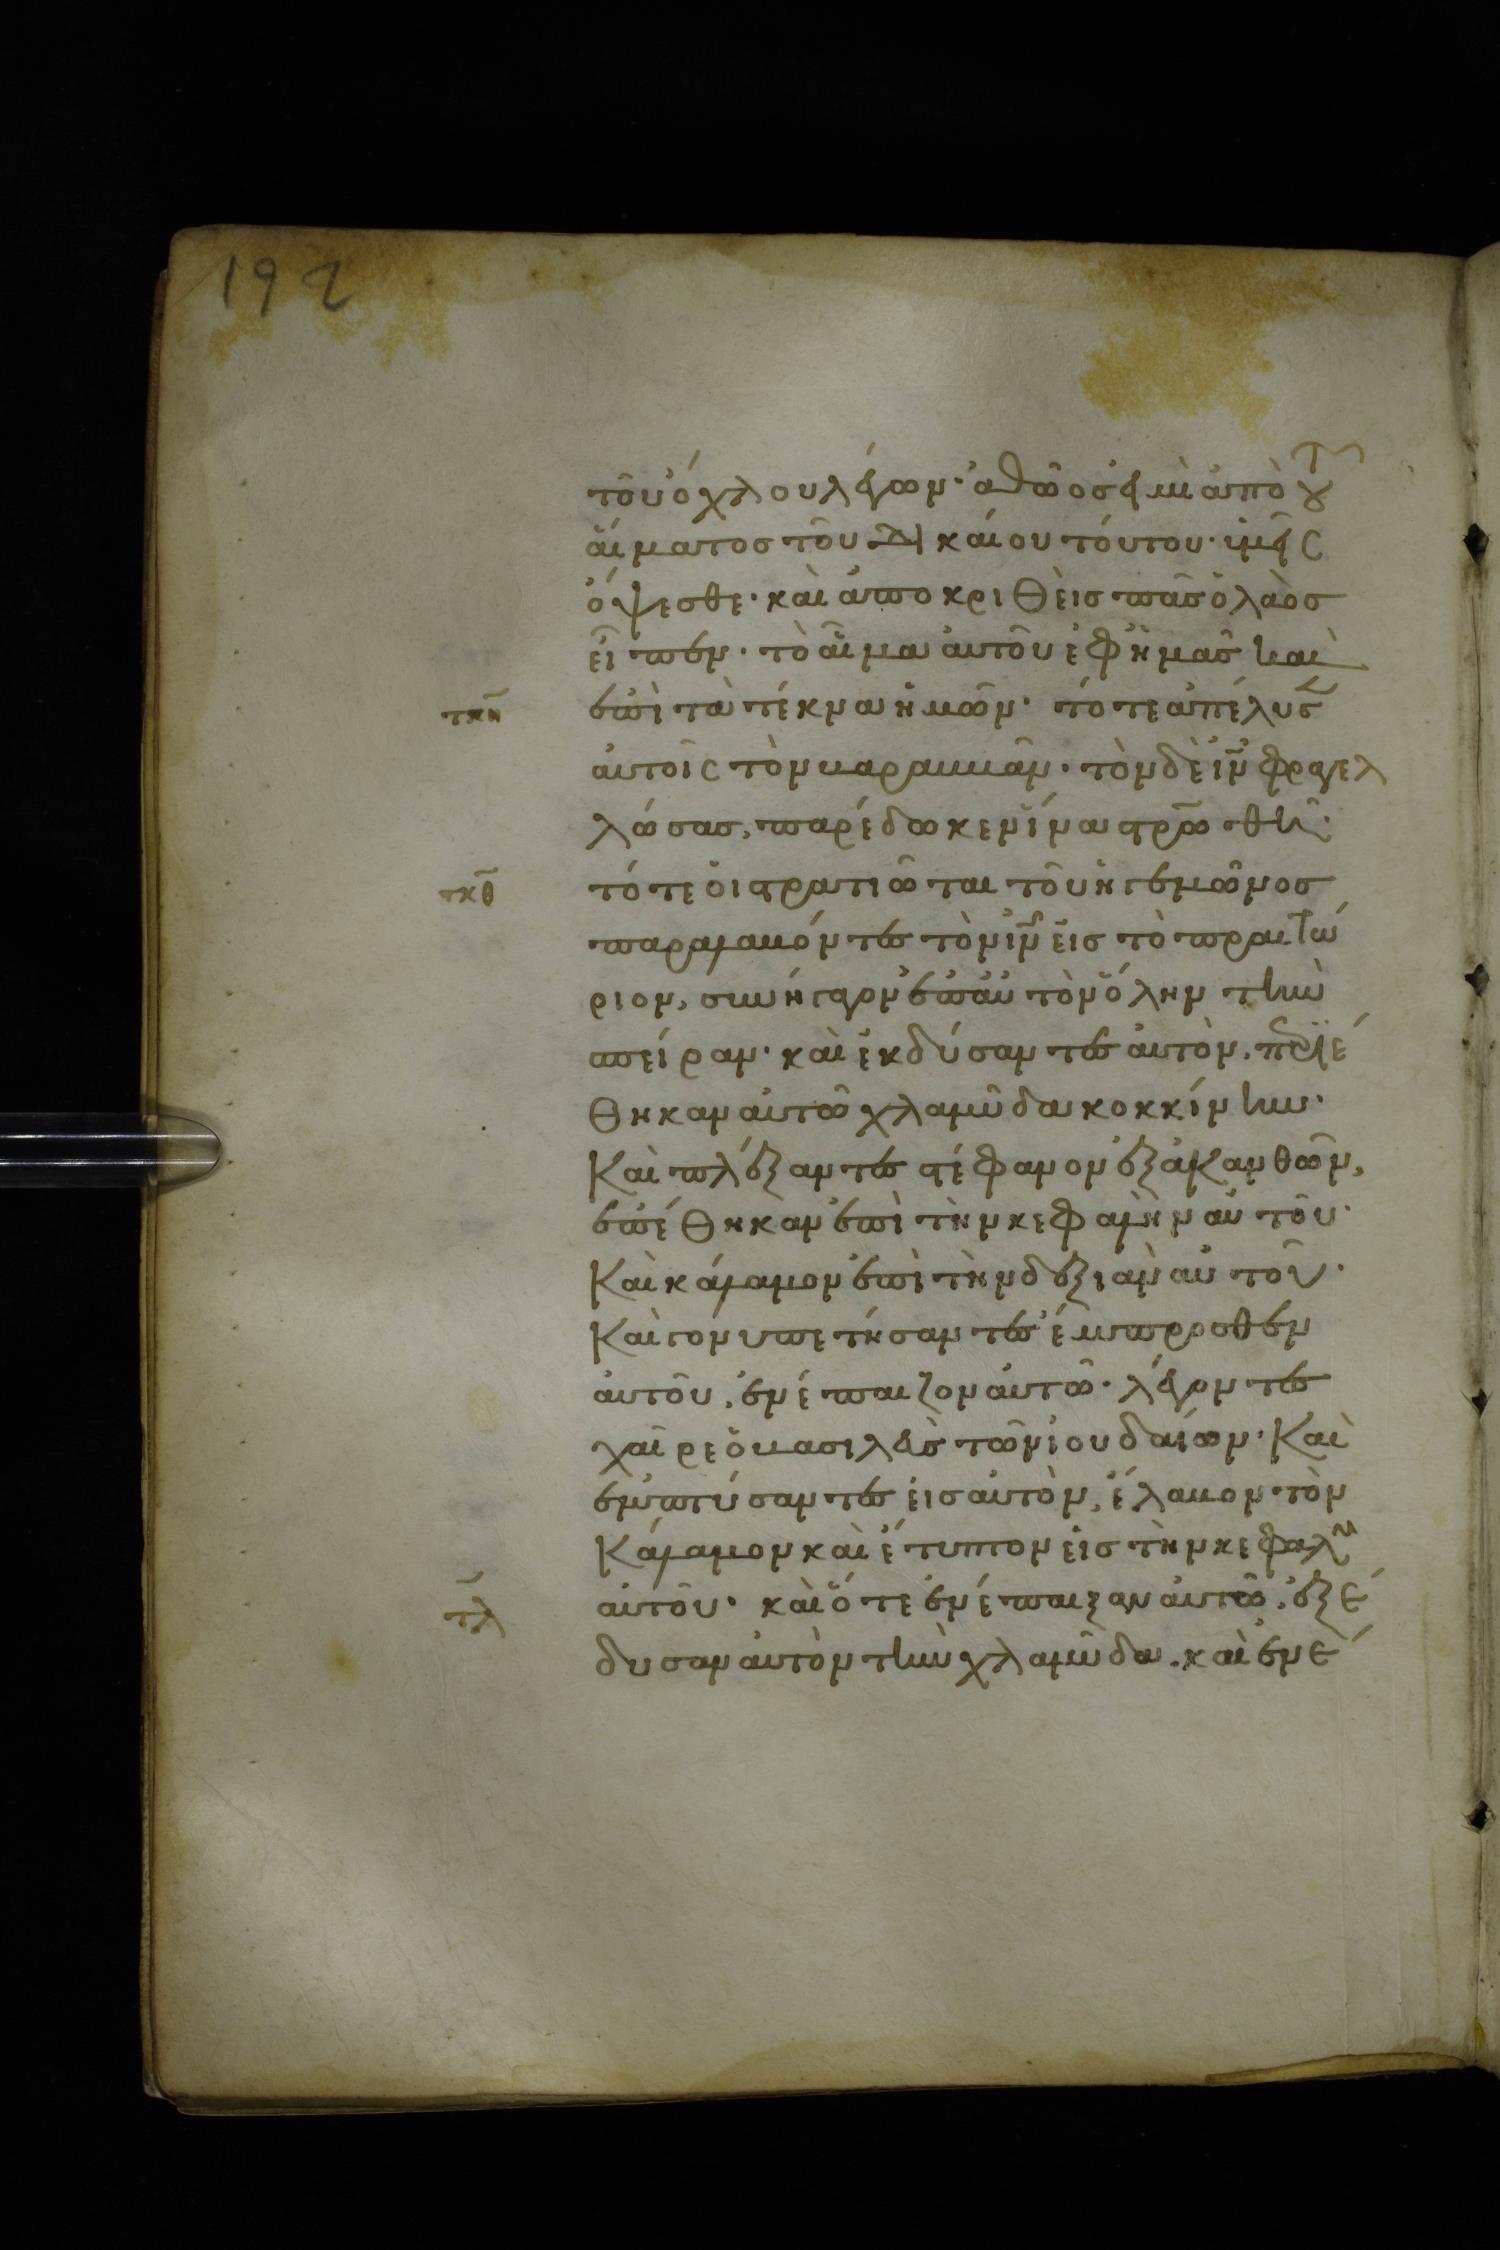 192
τοῦ ὄχλου λέγων· ἀθῶός εἰμι ἀπὸ τοῦ
αἵματος τοῦ δικαίου τούτου· ὑμεῖς
ὄψεσθε· καὶ ἀποκριθεὶς πᾶς ὁ λαὸς
εἶπεν· τὸ αἷμα αὐτοῦ ἐφ ἡμᾶς καὶ
τκη ἐπὶ τὰ τέκνα ἡμῶν· τότε ἀπέλυσεν
αὐτοῖς τὸν βαραββᾶν· τὸν δὲ ἰν φραγελ
λώσας, παρέδωκεν ἵνα στρωθῆ·
τκθ τότε οἱ στρατιῶται τοῦ ἡγεμῶνος
παραλαβόντες τὸν ἰν εἰς τὸ πραιτώ
ριον, συνήγαγον ἐπ αὐτὸν ὅλην τὴν
σπείραν· καὶ ἐκδύσαντες αὐτὸν· περιέ
θηκαν αὐτῶ χλαμῦδα κοκκίνην·
Καὶ πλέξαντες στέφανον ἐξ ἀκανθῶν,
ἐπέθηκαν ἐπὶ τὴν κεφαλὴν αὐτοῦ·
Καὶ κάλαμον ἐπὶ τὴν δεξιὰν αὐτοῦ·
Καὶ γονυπετήσαντες ἔμπροσθεν
αὐτοῦ, ἐνέπαιζον αὐτῶ· λέγοντες
χαῖρε ὁ βασιλεὺς τῶν ἰουδαίων· Καὶ
ἐμπτύσαντες εἰς αὐτὸν, ἔλαβον τὸν
Κάλαμον καὶ ἔτυπτον εἰς τὴν κεφαλὴν
τλ αὐτοῦ· καὶ ὅτε ἐνέπαιξαν αὐτῶ, ἐξέ
δυσαν αὐτὸν τὴν χλαμῦδα· καὶ ἐνέ